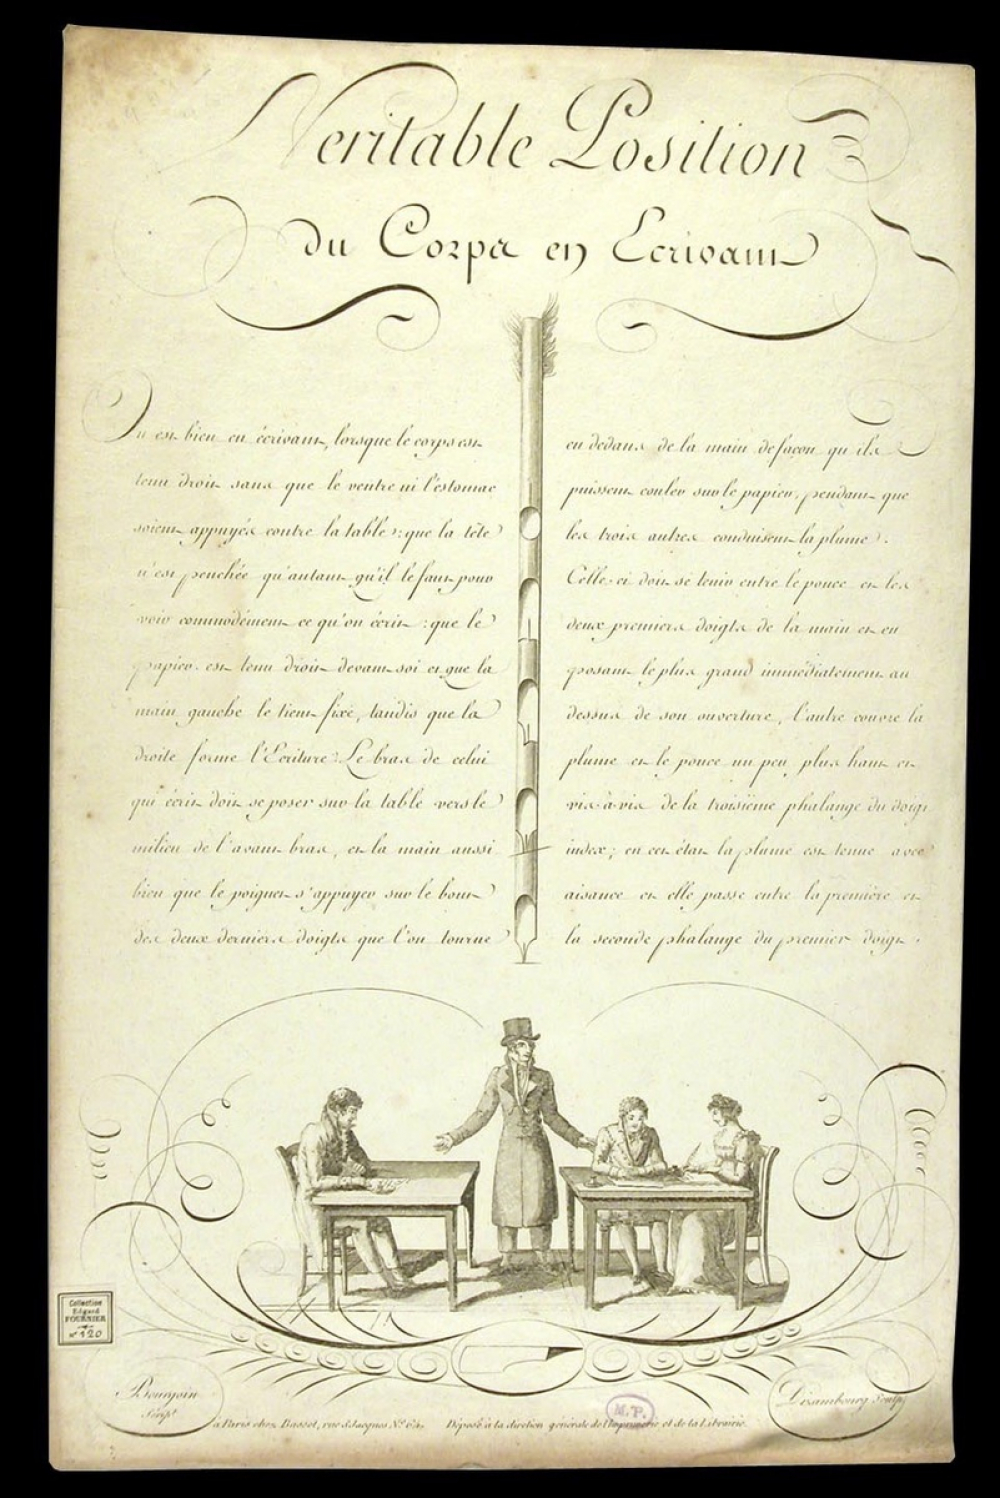 Veritable Position
du Corps en Ecrivant
On est bien en écrivant, lorsque le corps est
tenu droit sans que le ventre ni l'éstomac
soient appuyés contre la table : que la tête
n'est penchée qu'autant qu'il le faut pour
voir commodément ce qu'on écrit : que le
papier est tenu droit devant soi et que la
main gauche le tient fixé, tandis que la
droite forme l'Ecriture. Le bras de celui
qui écrit doit se poser sur la table vers le
milieu de l'avant bras, et la main aussi
bien que le poignet s'appuyer sur le bout
des deux derniers doigts que l'on tourne
en dedans de la main de façon qu'ils
puissent couler sur le papier, pendant que
les trois autres conduisent la plume.
Celle-ci doit se tenir entre le pouce et les
deux premiers doigts de la main et en
posant le plus grand immédiatement au
dessus de son ouverture, l'autre couvre la
plume et le pouce un peu plus haut et
vis-à-vis de la troisième phalange du doigt
index ; en cet état la plume est tenue avec
aisance et elle passe entre la première et
la seconde phalange du premier doigt.
Collection
Edgard
FOURNIER
n° 120
Bourgoin
Script
Dizambourg Sculp
M.P.
à Paris chez Basset, rue S. Jacques N° 64. Déposé à la direction générale de l'Imprimerie et de la Librairie.